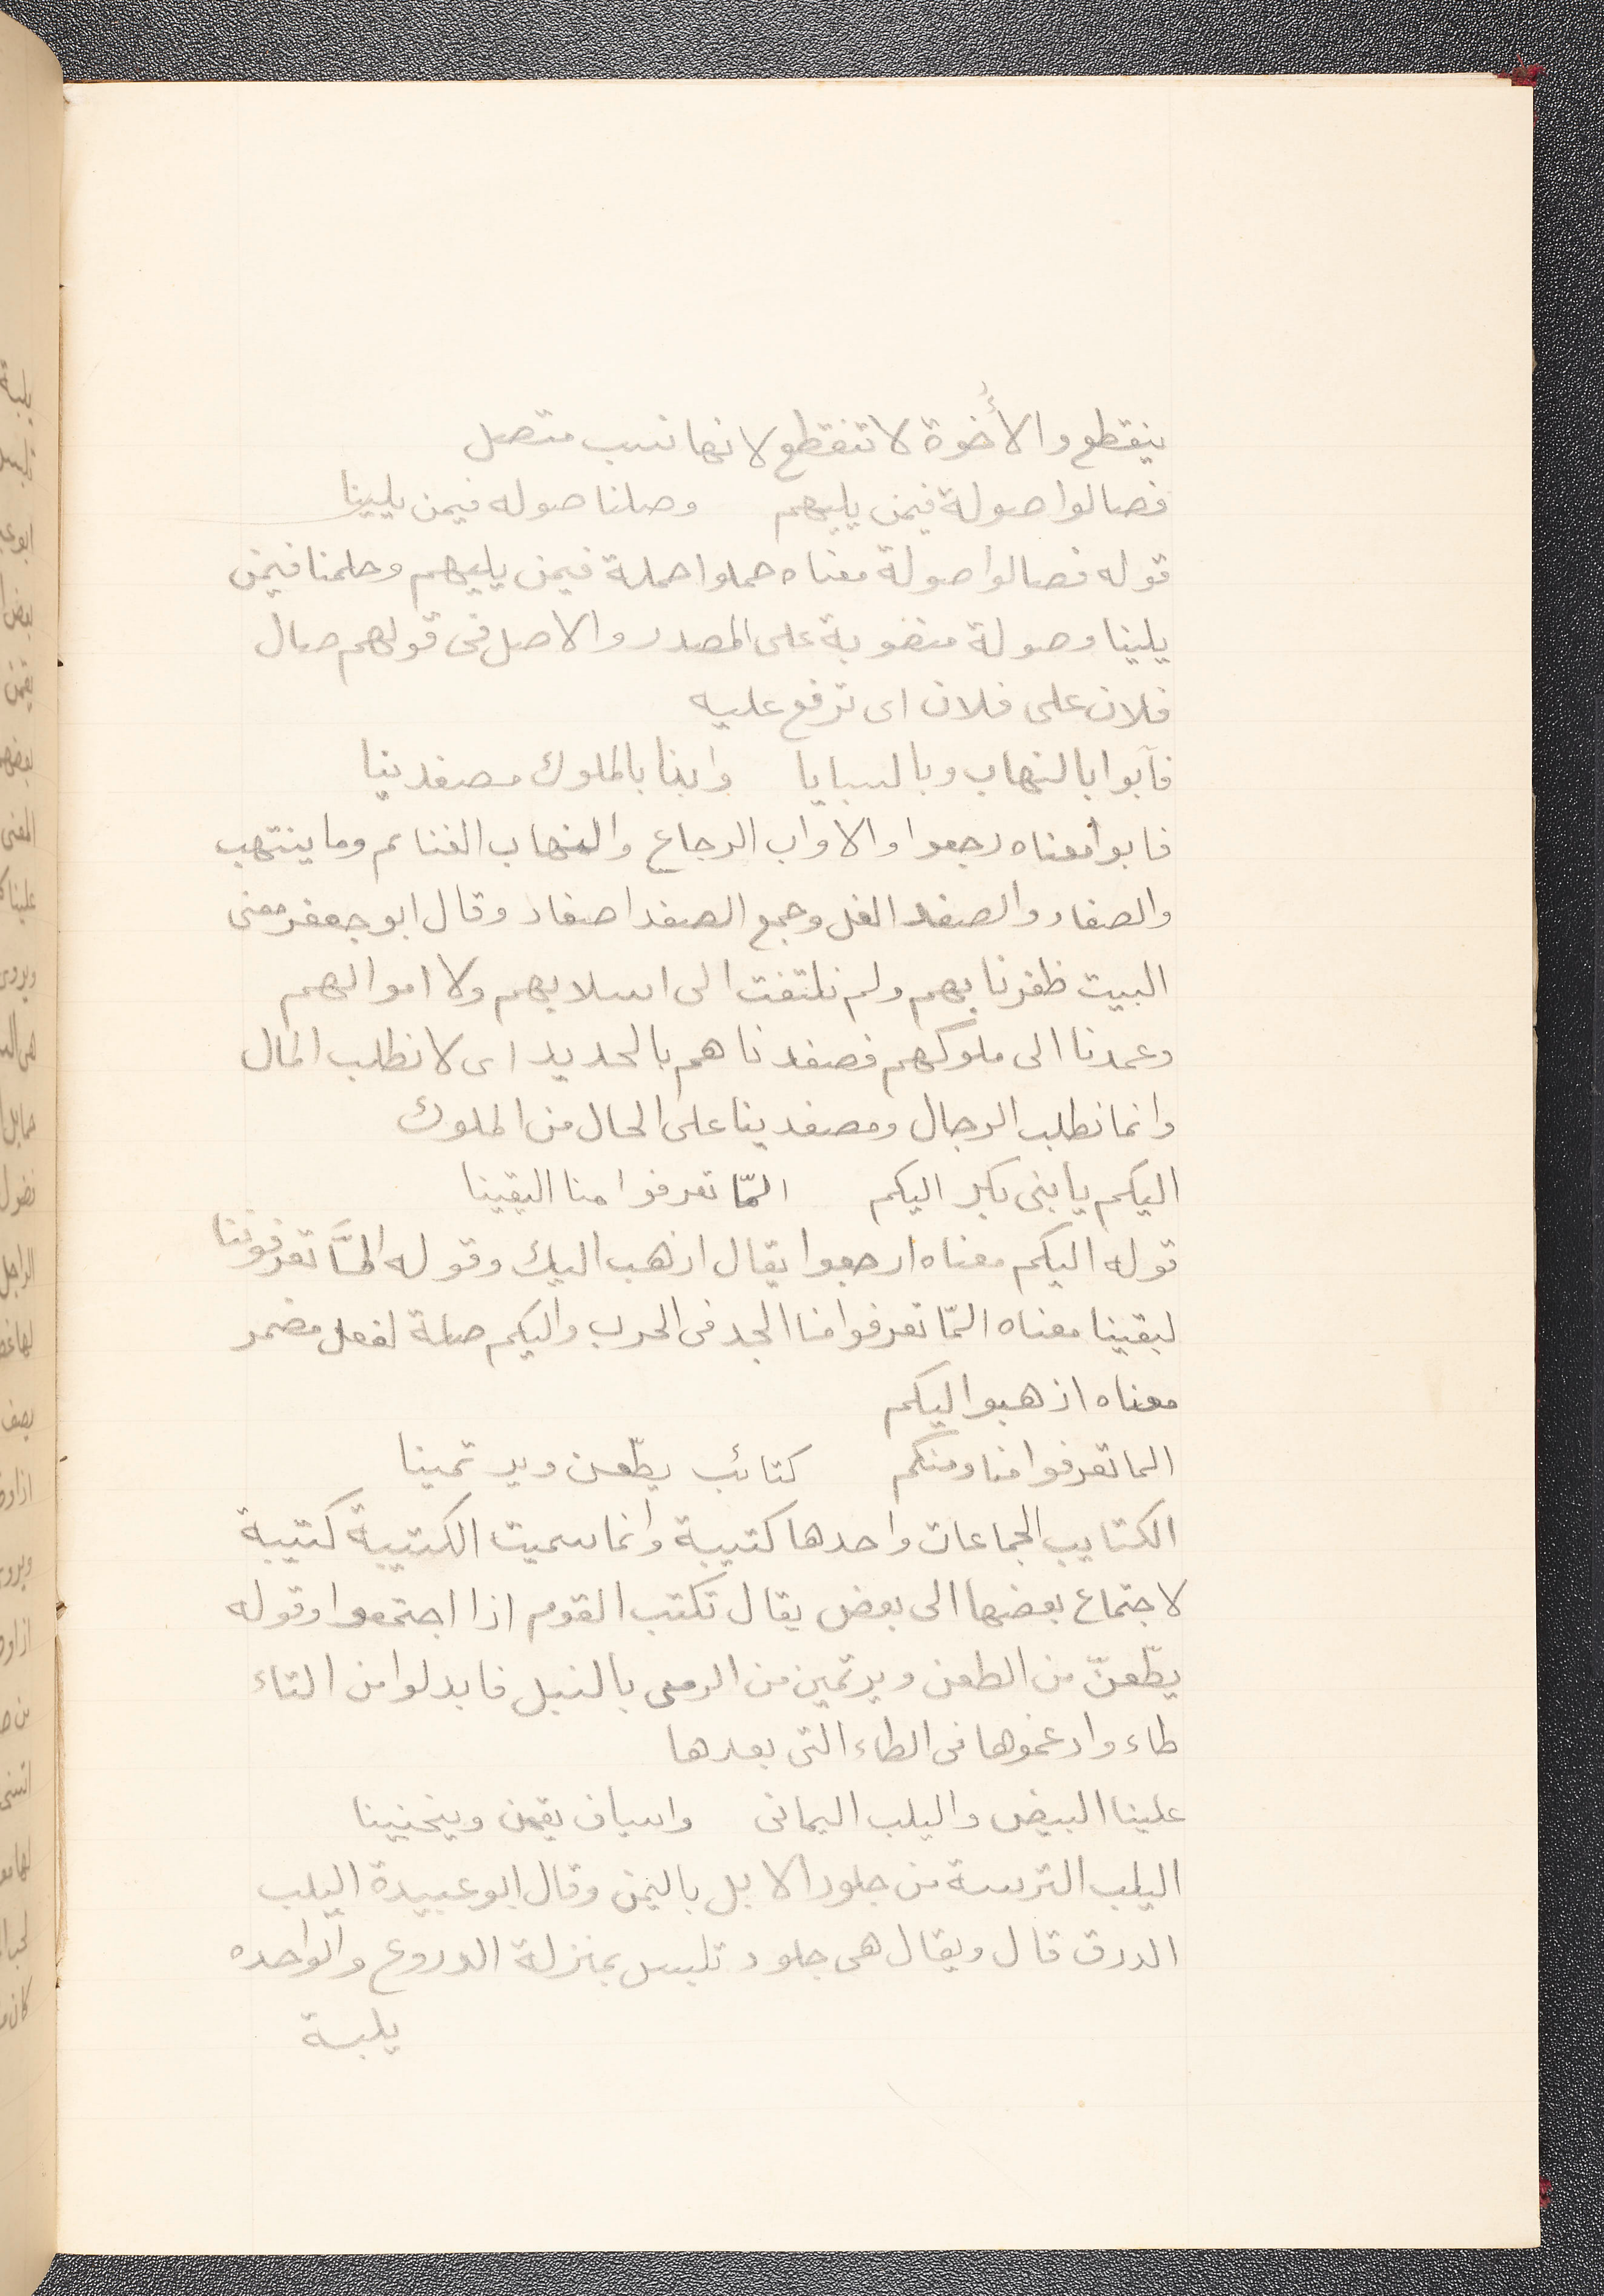 ينقطع والأُخوة لا تنقطع لانها نسب متصل
فصالوا صولة فيمن يليهم وصلنا صوله فيمن يلينا
قوله فصالوا صولة معناه حملوا حملة فيمن يليهم وحلمنا فيمن
يلينا وصولة منصوبة على المصدر والاصل فى قولهم صال
فلان على فلان اى ترفع عليه
فآبوا بالنهاب وبالسبايا وابنا بالملوك مصفدينا
فابوا معناه رجعوا والاواب الرجاع والنهاب الغنائم وما ينتهب
والصفاد والصفد الغل وجمع الصفد اصفاد وقال ابو جعفر معنى
البيت ظفرنا بهم ولم نلتفت الى اسلابهم ولا اموالهم
وعمدنا الى ملوكهم فصفدناهم بالحديد اى لا نطلب المال
وانما نطلب الرجال ومصفدينا على الحال من الملوك
اليكم يا بنى بكر اليكم المّا تعرفوا منا اليقينا
قوله اليكم معناه ارجعوا يقال اذهب اليك وقوله المَّا تعرفوننا
ليقينا معناه المّا تعرفوا منا الجد فى الحرب واليكم صلة لفعل مضمر
معناه اذهبوا اليكم
الما تعرفوا منا ومنكم كتائب يطّعن ويرتمينا
الكتايب الجماعات واحدها كتيبة وانما سميت الكتيبة كتيبة
لاجتماع بعضها الى بعض يقال تكتب القوم اذا اجتمعوا وقوله
يطّعنّ من الطعن ويرتمين من الرمى بالنبل فابدلوا من التاء
طاء وادغموها فى الطاء التى بعدها
علينا البيض واليلب اليمانى واسياف يقمن وينحنينا
اليلب الترسة من جلود الابل باليمن وقال ابو عبيدة اليلب
الدرق قال ويقال هى جلود تلبس بمنزلة الدروع والواحده
يلبة